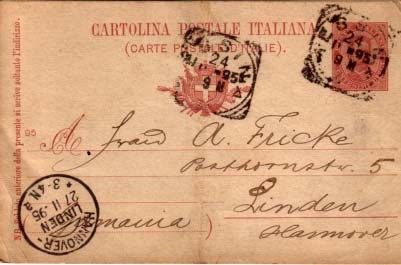 CARTOLINA POSTALE ITALIANA
(CARTE POSTALE D'ITALIE)
24
95
9 M
24
95
9 M
NB. Sul lato anteriore della presente si scrive soltanto l'indirizzo.
95
A. Fricke
Posthornstr. 5
Linden
Hannover
(Germania)
HANNOVER-
LINDEN
27 11.95
3-4N